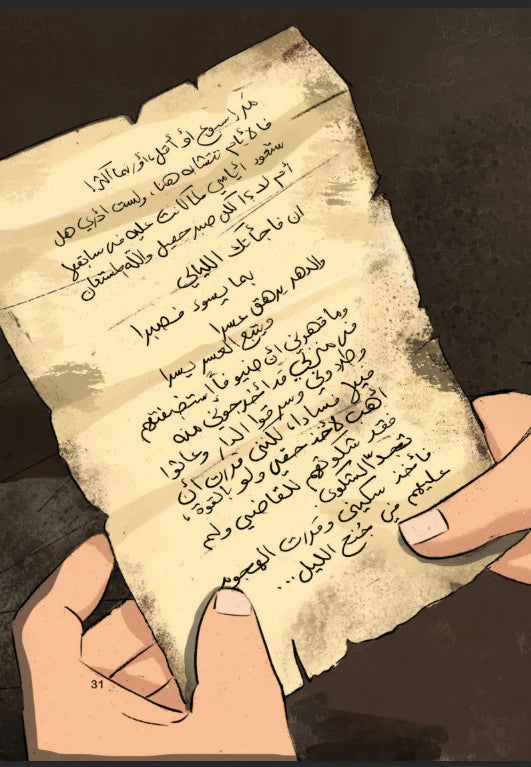 مرّ أسبوع أو أقل، أو ربما أكثر!
فالأيام تتشابه هنا، ولست أدري هل
ستعود أيامي كما كانت عليه في سابقها
أم لا؟! لكن صبر جميل والله المستعان
ان فاجأتك الليالي
بما يسوء فصبرا
فالدهر يرهق عسرا
ويتبع العسر يسرا
وما قهرني أن ضيوفاً استضفتهم
في منزلي قد أخرجوني منه
وطردوني وسرقوا الدار وعاثوا
فيها فسادا، لكنني قررت أن
أهب لأخذ حقي ولو بالقوة،
فقد شكوتهم للقاضي ولم
تُجدِ الشكوى
فأخذت سكيني وقررت الهجوم
عليهم في جُنح الليل...
31